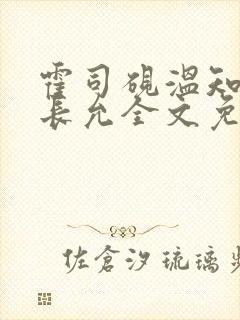 霍司砚温知
长允全文免
佐倉汐琉璃